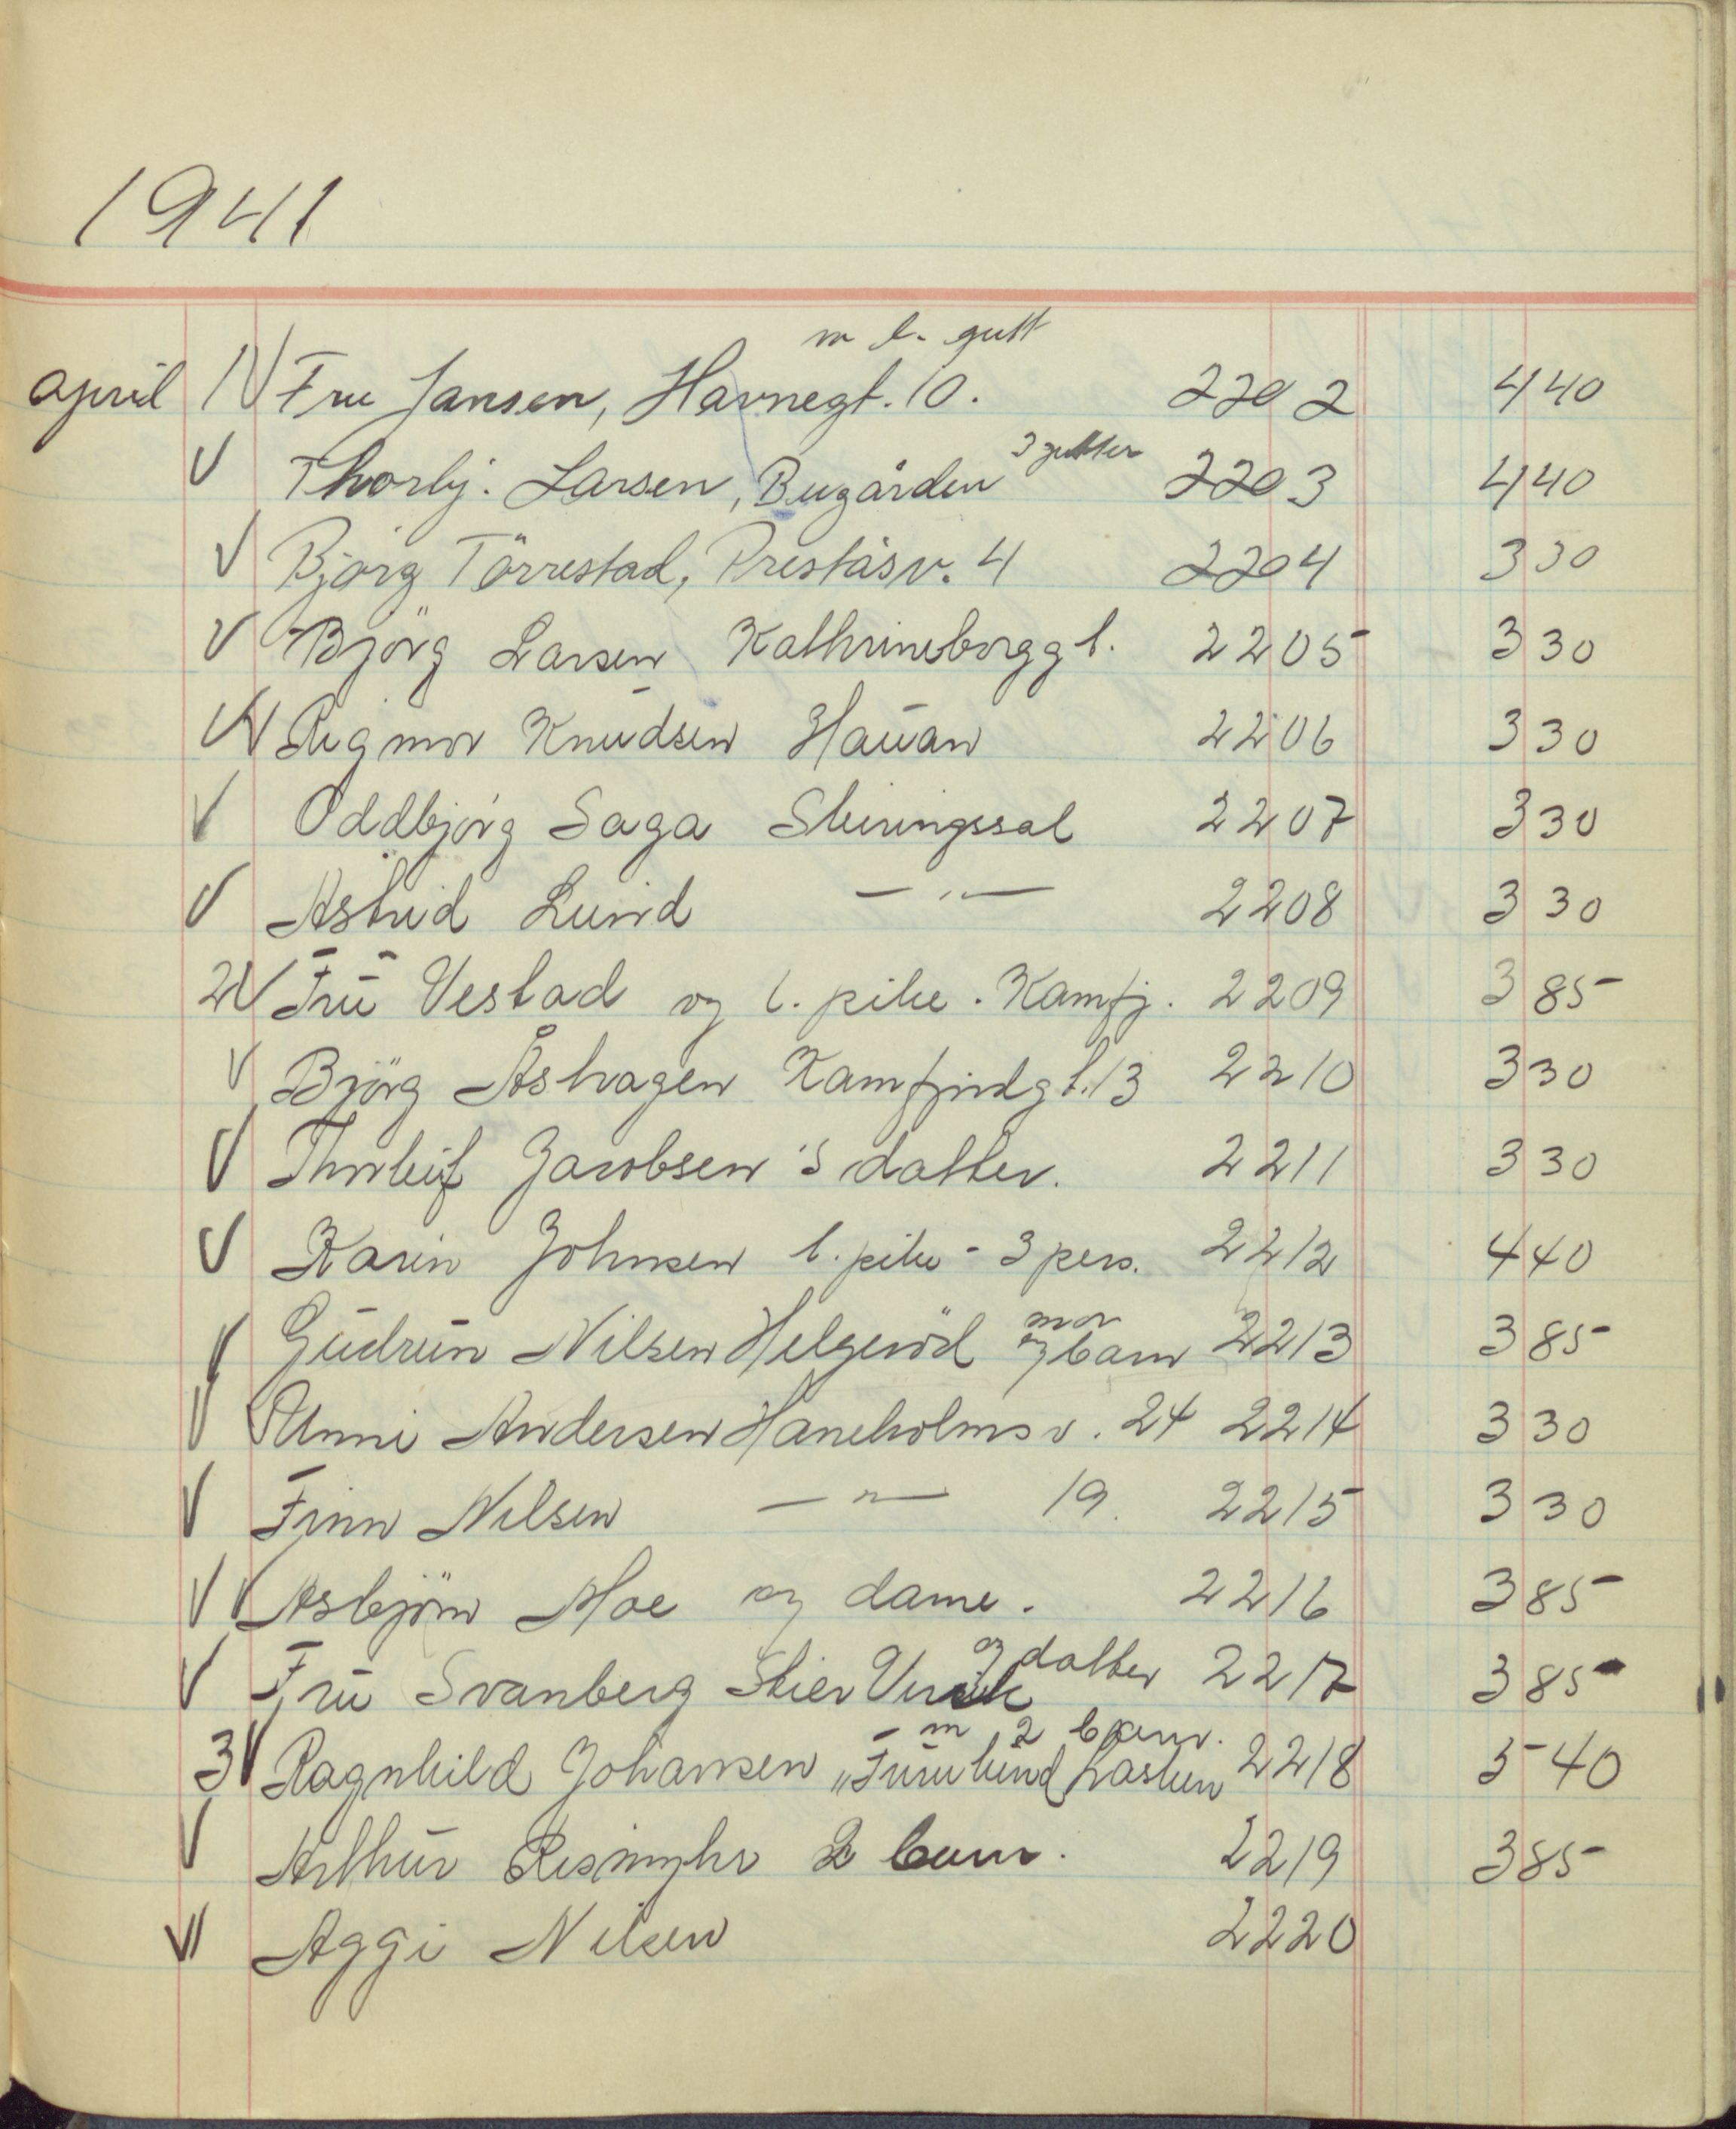 1941
m l. gutt
april 1 √ Fru Jansen, Havnegt. 10. 2202 4 40
√ Thorbj. Larsen, Bugården 3 gutter 2203 4 40
√ Björg Törrestad, Preståsv. 4 2204 3 30
√ Björg Larsen Kathrineborggt. 2205 3 30
√ Rigmor Knudsen Hauan 2206 3 30
√ Oddbjörg Saga Skiringssal 2207 3 30
√ Astrid Lund — " — 2208 3 30
2 √ Fru Vestad og l. pike. Kamfj. 2209 3 85
√ Björg Åshagen Kamfjordgt. 13 2210 3 30
√ Thorleif Jacobsen's datter. 2211 3 30
√ Karin Johnsen l. pike - 3 pers. 2212 4 40
√ Gudrun Nilsen Helgeröd mor og barn 2213 3 85
√ Unni Andersen Haneholmsv. 24 2214 3 30
√ Finn Nilsen — " — 19. 2215 3 30
√ Asbjörn Moe og dame. 2216 3 85
√ Fru Svanberg og datter 2217 3 85
m 2 barn.
3 √ Ragnhild Johansen „Furulund 2218 5 40
√ Arthur 2 barn. 2219 3 85
√ Aggi Nilsen 2220